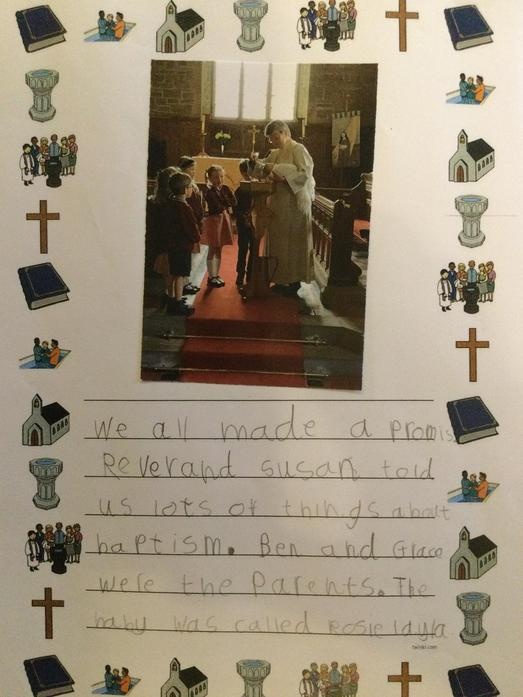 We all made a promis
Reverand susan told
us lots of things about
baptism. Ben and Grace
were the Parents. The
baby was called rosie layla.
twinkl.com